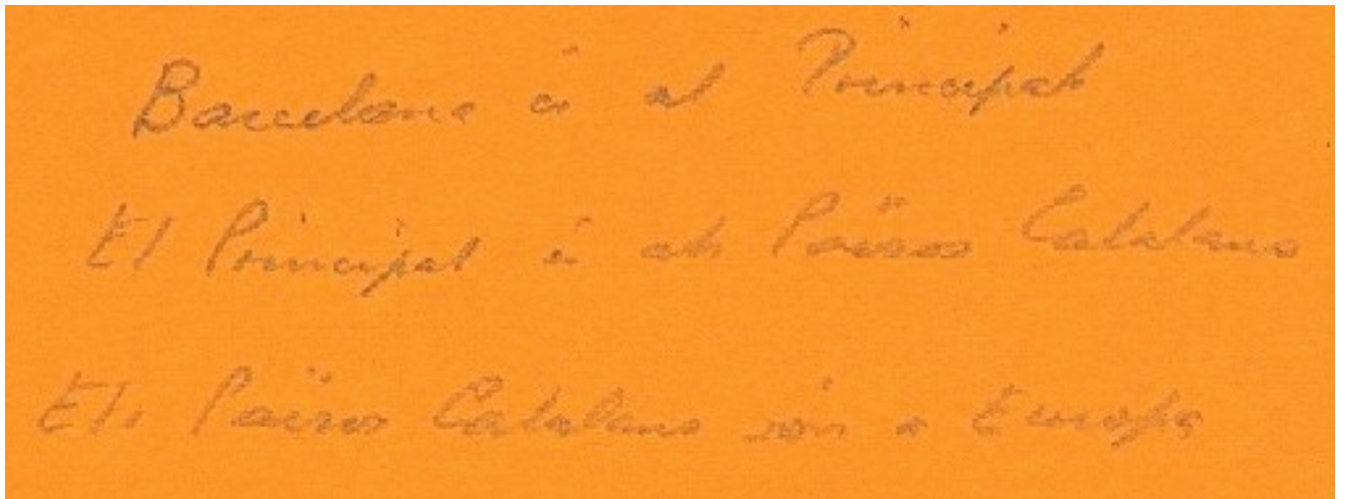 Barcelona és al Principat
El Principat és als Països Catalans
Els Països Catalans són a Europa